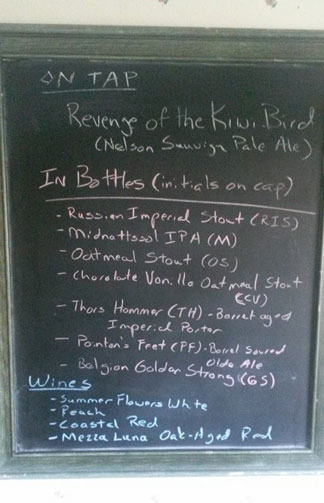 ON TAP
Revenge of the Kiwi Bird
(Nelson Sauvign Pale Ale)
In Bottles (initials on cap)
- Russian Imperial Stout (RIS)
- Midnattssol IPA (M)
- Oatmeal Stout (OS)
- Chocolate Vanilla Oatmeal Stout
(CCV)
- Thors Hammer (TH) - Barrel aged
Imperial Porter
- Feet (PF) - Barrel Soured
Olde Ale
- Belgian Golden Strong (GS)
Wines
- Summer Flowers White
- Peach
- Coastal Red
- Mezza Luna Oak-Aged Red